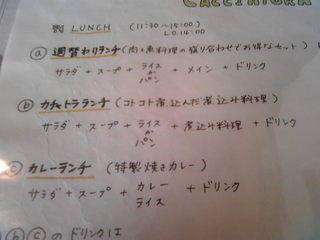 CACCIATORA
LUNCH (11:30~15:00)
L.O.14:00
ⓐ 週替わりランチ (肉と魚料理の盛り合わせでお得なセット)
サラダ + スープ + ライスかパン + メイン + ドリンク
ⓑ カチャトラランチ (コトコト煮込んだ煮込み料理)
サラダ + スープ + ライスかパン + 煮込み料理 + ドリンク
ⓒ カレーランチ (特製焼きカレー)
サラダ + スープ + カレーライス + ドリンク
ⓑ ⓒ のドリンクは